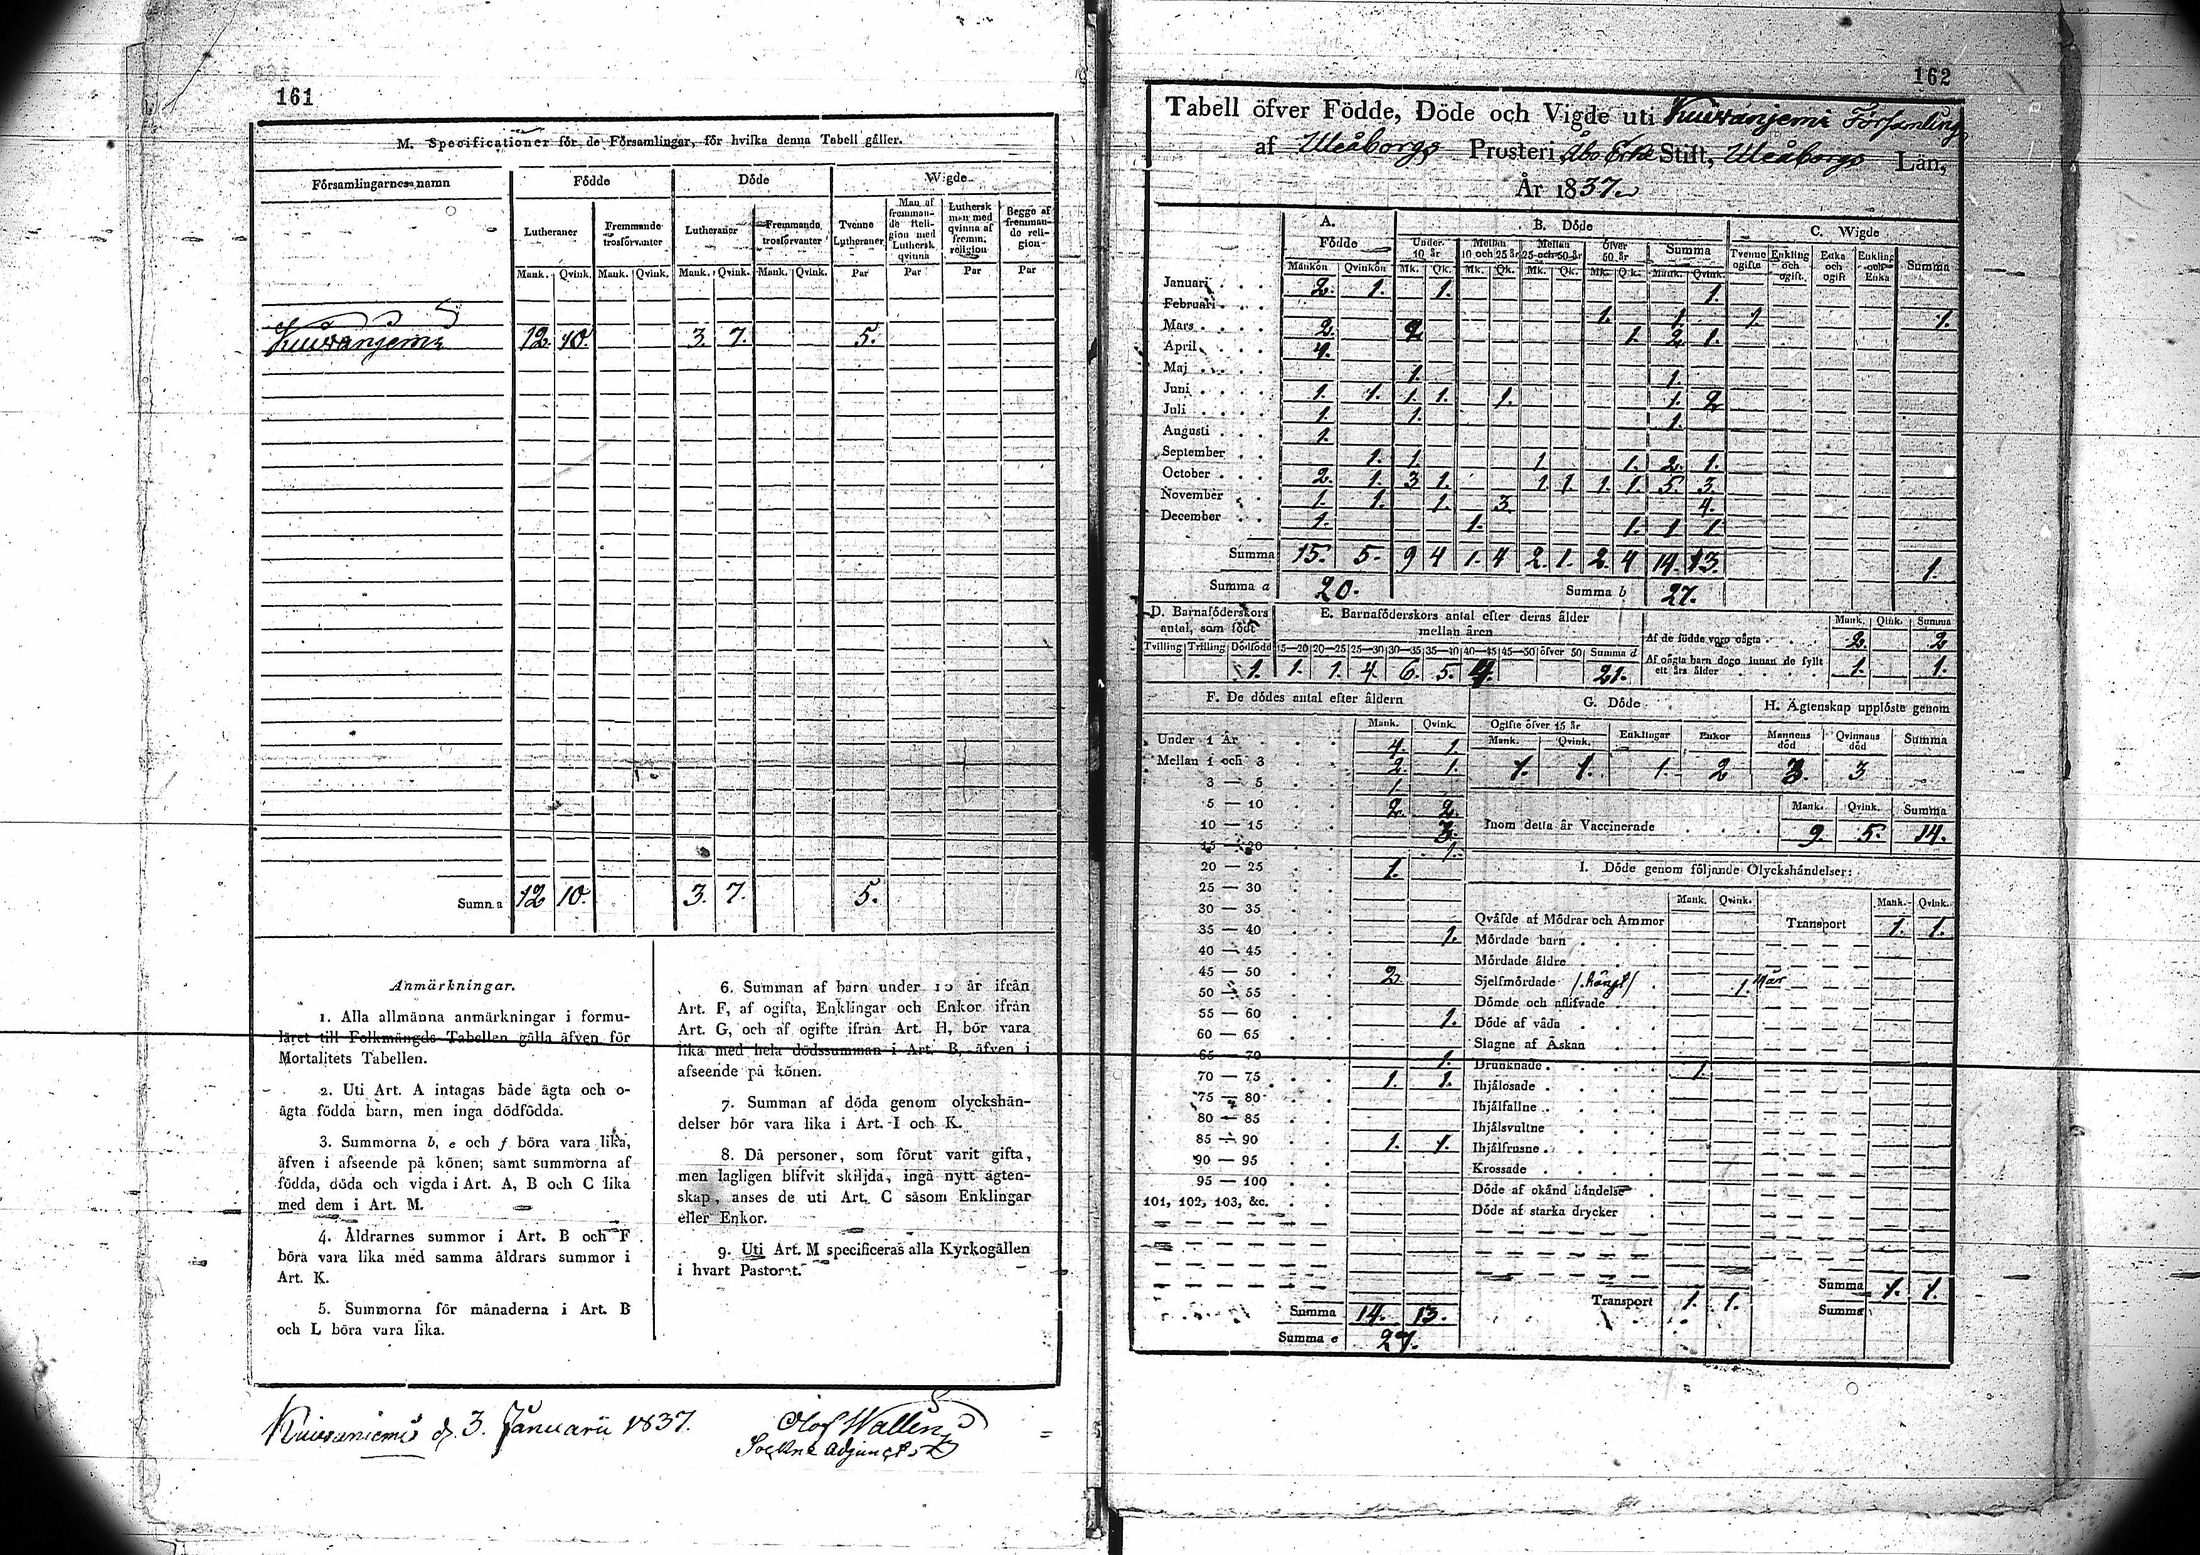 161
M. Specificationer för de Församlingar, för hvilka denna Tabell gäller.
Församlingarnes namn Födde Döde Wigde
Lutheraner Fremmande trosförvanter Lutheraner Fremmande trosförvanter Tvenne Lutheraner Man af fremmande Religion med Luthersk qvinna Luthersk man med qvinna af fremm. religion Begge af fremmande religion
Mank. Qvink. Mank. Qvink. Mank. Qvink. Mank. Qvink. Par Par Par Par
Kuivaniemi 12. 10. 3. 7. 5.
Summa 12 10. 3. 7. 5.
Anmärkningar.
1. Alla allmänna anmärkningar i formu-
läret till Folkmängds Tabellen gälla äfven för
Mortalitets Tabellen.
2. Uti Art. A intagas både ägta och o-
ägta födda barn, men inga dödfödda.
3. Summorna b, e och f böra vara lika,
äfven i afseende på könen; samt summorna af
födda, döda och vigda i Art. A, B och C lika
med dem i Art. M.
4. Åldrarnes summor i Art. B och F
böra vara lika med samma åldrars summor i
Art. K.
5. Summorna för månaderna i Art. B
och L böra vara lika.
6. Summan af barn under 10 år ifrån
Art. F, af ogifta, Enklingar och Enkor ifrån
Art. G, och af ogifte ifrån Art. H, bör vara
lika med hela dödssumman i Art. B, äfven i
afseende på könen.
7. Summan af döda genom olyckshän-
delser bör vara lika i Art. I och K.
8. Då personer, som förut varit gifta,
men lagligen blifvit skiljda, ingå nytt ägten-
skap, anses de uti Art. C såsom Enklingar
eller Enkor.
9. Uti Art. M specificeras alla Kyrkogällen
i hvart Pastorat.
Kuivaniemi d. 3. Januarii 1837.
Olof Wallen
Sockne Adjunct
162
Tabell öfver Födde, Döde och Vigde uti Kuivaniemi Församling
af Uleåborgs Prosteri, Åbo Erke Stift, Uleåborgs Län,
År 1837.
A. Födde B. Döde C. Wigde
Under 10 år Mellan 10 och 25 år Mellan 25 och 50 år öfver 50 år Summa Tvenne ogifte Enkling och ogift Enka och ogift Enkling och Enka Summa
Mankön Qvinkön Mk. Qk. Mk. Qk. Mk. Qk. Mk. Qk. Mank. Qvink.
Januari 2. 1. 1. 1.
Februari 1. 1. 1. 1.
Mars 2. 2 1. 2 1.
April 4.
Maj 1. 1.
Juni 1. 1. 1. 1. 1. 1. 2
Juli 1. 1. 1.
Augusti 1.
September 1. 1. 1 1. 2. 1.
October 2. 1. 3 1. 1. 1. 1. 1. 5. 3.
November 1. 1. 1. 3. 4.
December 1. 1. 1. 1 1.
Summa 15. 5. 9 4 1. 4 2. 1. 2. 4 14. 13. 1.
Summa a 20. Summa b 27.
D. Barnaföderskors antal, som födt
Tvilling Trilling Dödfödd
1.
E. Barnaföderskors antal efter deras ålder mellan åren
15—20 20—25 25—30 30—35 35—40 40—45 45—50 öfver 50 Summa d
1. 1. 4. 6. 5. 4. 21.
Mank. Qink. Summa
Af de födde voro oägta 2. 2
Af oägta barn dogo innan de fyllt ett års ålder 1. 1.
F. De dödes antal efter åldern
Mank. Qvink.
Under 1 År 4. 1.
Mellan 1 och 3 2. 1.
3 — 5 1.
5 — 10 2. 2.
10 — 15 3.
15 — 20 1.
20 — 25 1.
25 — 30
30 — 35
35 — 40 1.
40 — 45
45 — 50 2.
50 — 55
55 — 60 1.
60 — 65
65 — 70 1.
70 — 75 1. 1.
75 — 80
80 — 85
85 — 90 1. 1.
90 — 95
95 — 100
101, 102, 103, &c.
Summa 14. 13.
Summa e 27.
G. Döde
Ogifte öfver 15 år Enklingar Enkor
Mank. Qvink.
1. 1. 1. 2
H. Ägtenskap upplöste genom
Mannens död Qvinnans död Summa
3
Mank. Qvink. Summa
Inom detta år Vaccinerade 9. 5. 14.
I. Döde genom följande Olyckshändelser:
Mank. Qvink. Mank. Qvink.
Qväfde af Mödrar och Ammor
Transport 1. 1.
Mördade barn
Mördade äldre
Sjelfmördade (hängt) 1.
Dömde och aflifvade
Döde af våda
Slagne af Åskan
Drunknade 1.
Ihjälosade
Ihjälfallne
Ihjälsvultne
Ihjälfrusne
Krossade
Döde af okänd händelse
Döde af starka drycker
Summa 1. 1.
Transport 1. 1. Summa